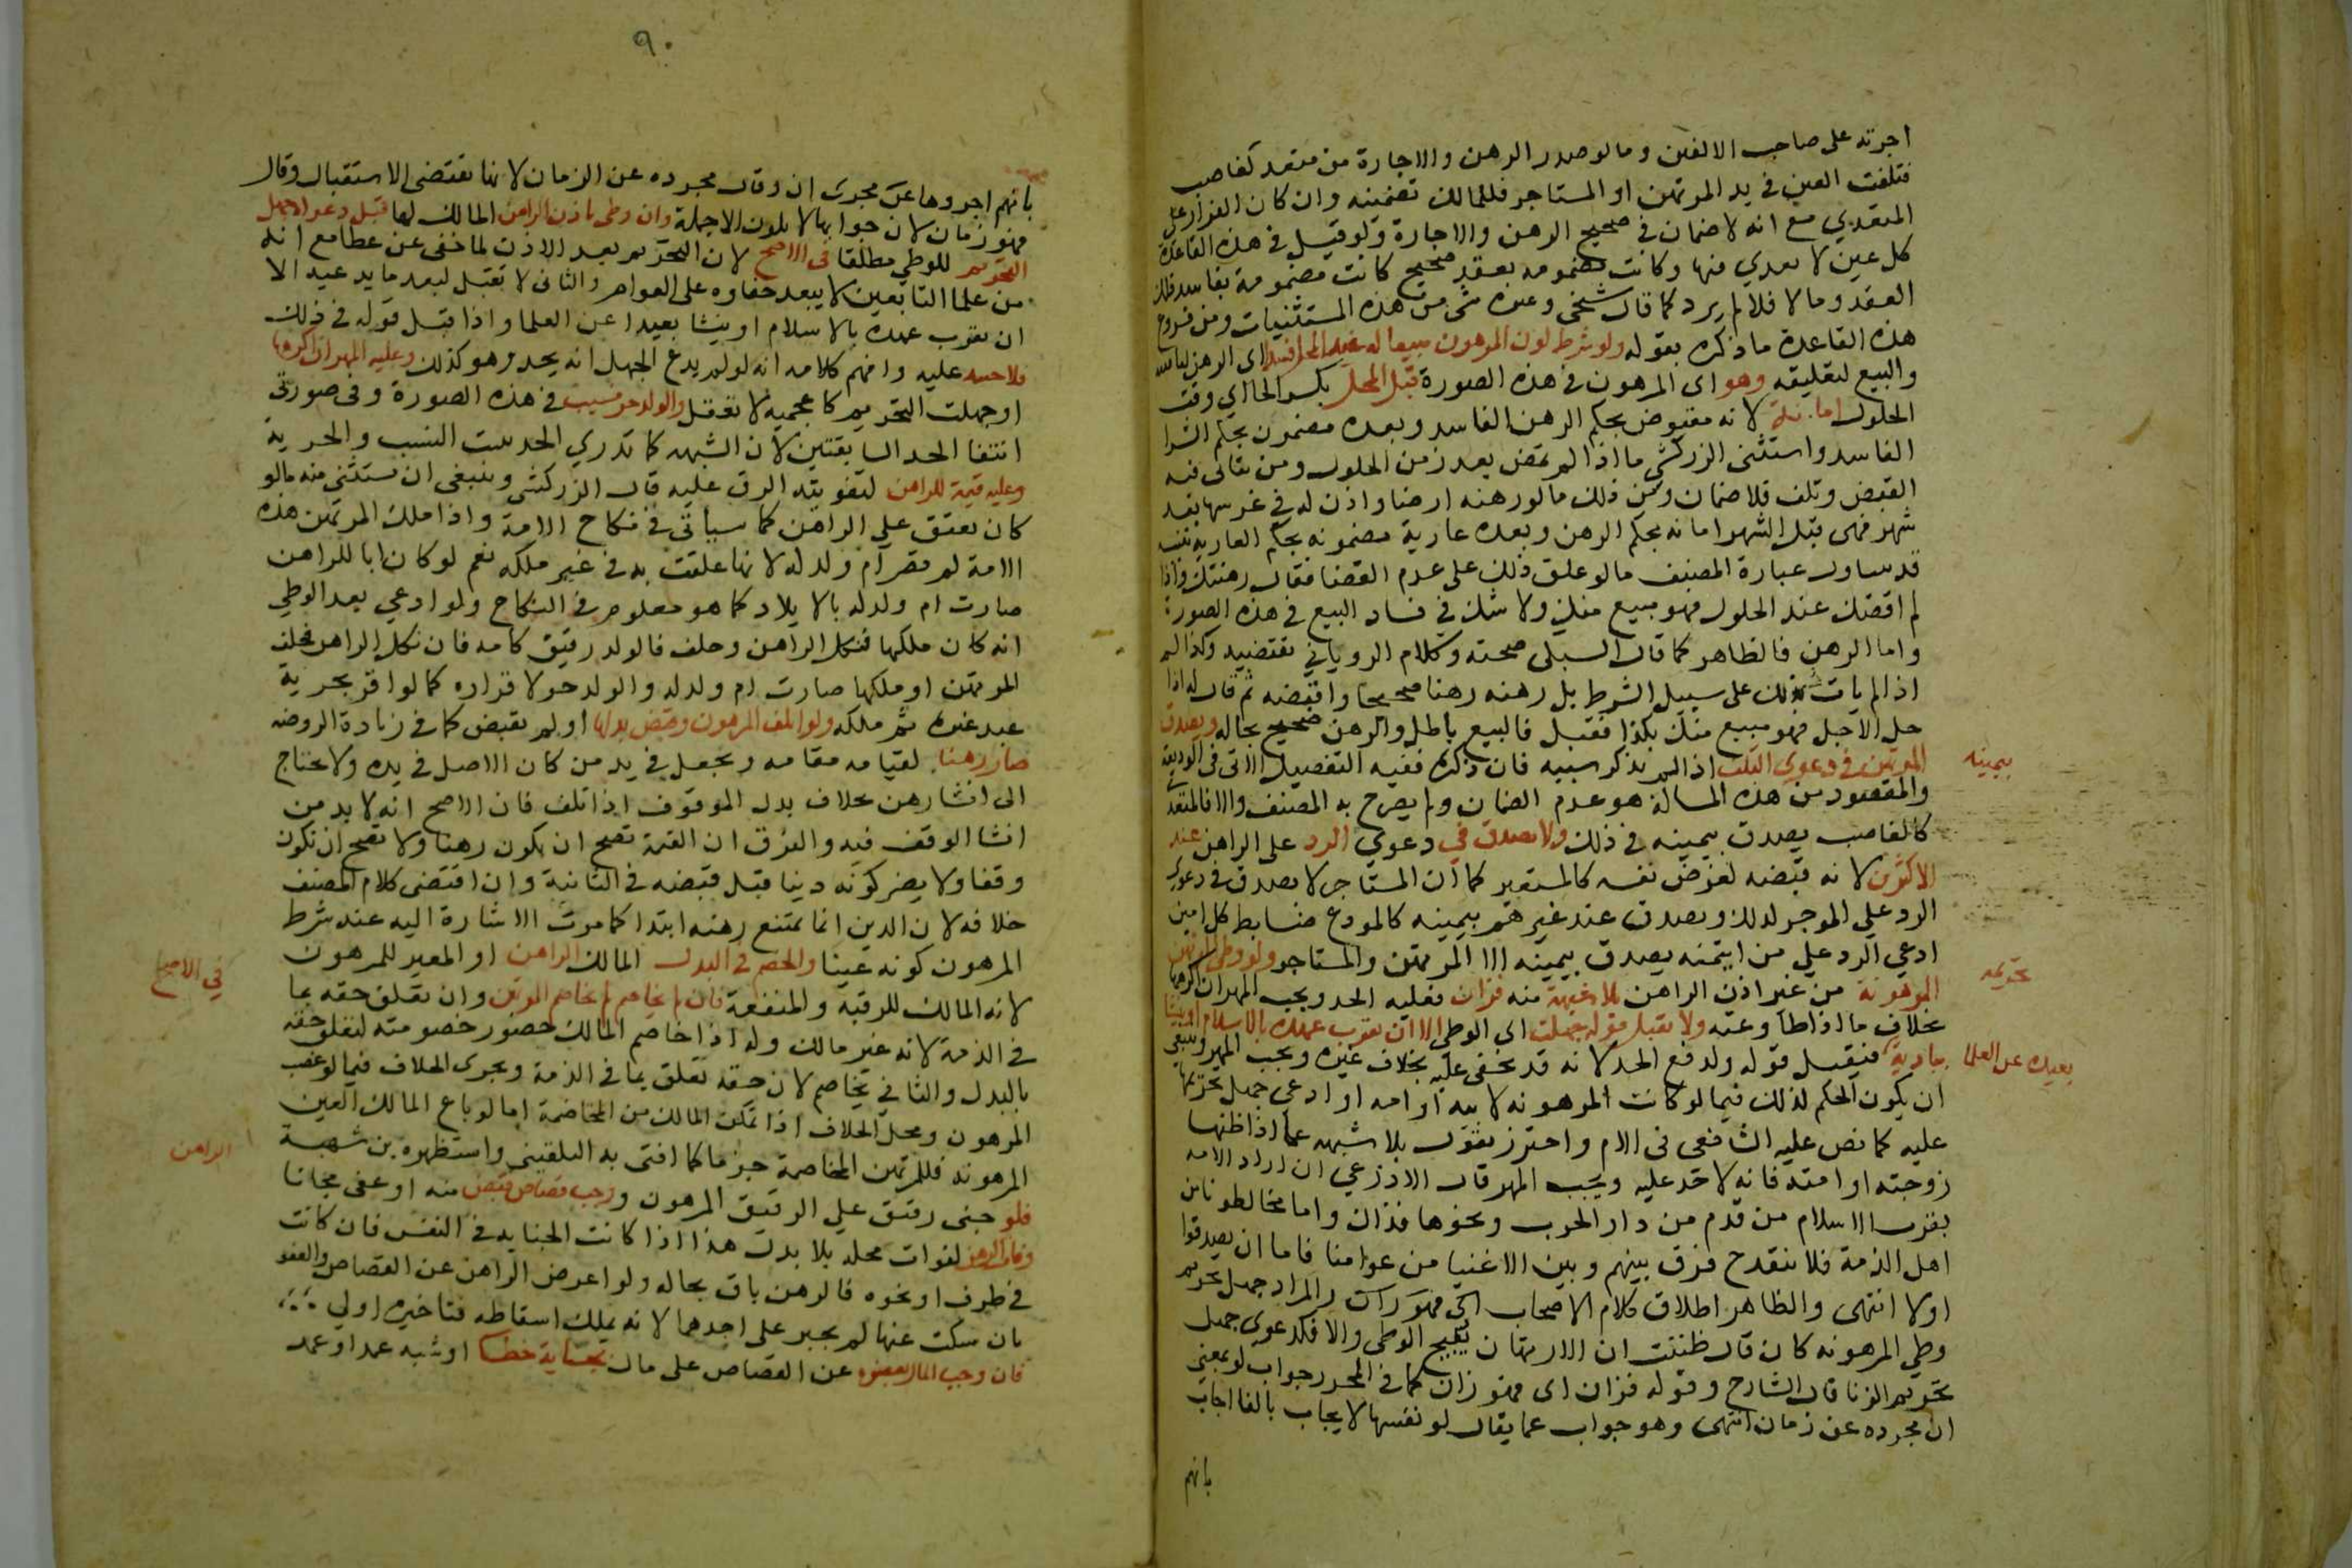 اجرته على صاحب الالفين وما لو صدر الرهن والاجارة من متعد كغاصب
فتلفت العين في يد المرتهن او المستاجر فللمالك تضمينه وان كان القرار على
المتعدي مع انه لا ضمان في صحيح الرهن والاجارة ولو قيل في هذه القاعدة
كل عين لا تعدي فيها وكانت مضمونه بعقد صحيح كانت مضمونة بفاسد ذلك
العقد وما لا فلا لم يرد كما قال شيخي وغيره شي من هذه المستثنيات ومن فروع
هذه القاعدة ما ذكره بقوله ولو شرط كون المرهون مبيعا له عند الحلول فسدا اي الرهن لتاقيته
والبيع لتعليقه وهو اي المرهون في هذه الصورة قبل المحل بكسر الحا اي وقت
الحلول امانة لانه مقبوض بحكم الرهن الفاسد وبعده مضمون بحكم الشرا
الفاسد واستثنى الزركشي ما اذا لم يمض بعد زمن الحلول زمن يتاتى فيه
القبض وتلف فلا ضمان ومن ذلك ما لو رهنه ارضا واذن له في غرسها بعد
شهر فهي قبل الشهر امانه بحكم الرهن وبعده عارية مضمونه بحكم العارية
قد يساول عبارة المصنف ما لو علق ذلك على عدم القضا فقال رهنتك واذا
لم اقضك عند الحلول فهو مبيع منك ولا شك في فساد البيع في هذه الصورة
واما الرهن فالظاهر كما قال السبكي صحته وكلام الروياني يقتضيه وكذا لم
اذا لم يات بذلك على سبيل الشرط بل رهنه رهنا صحيحا واقبضه ثم قال له اذا
حل الاجل فهو مبيع منك بكذا فقبل فالبيع باطل والرهن صحيح بحاله ويصدق
المرتهن في دعوى التلف اذا لم يذكر سببه فان ذكره ففيه التفصيل الاتي في الوديعة
بيمينه
والمقصود من هذه المسالة هو عدم الضمان ولم يصرح به المصنف والا فالمتعدي
كالغاصب يصدق بيمينه في ذلك ولا يصدق في دعوى الرد على الراهن عند
الاكثرين لانه قبضه لغرض نفسه كالمستعير كما ان المستاجر لا يصدق في دعوى
الرد على الموجر لذلك ويصدق عند غيرهم بيمينه كالمودع ضابط كل امين
ادعي الرد على من ايتمنه يصدق بيمينه الا المرتهن والمستاجر ولو وطي المرتهن
المرهونة من غير اذن الراهن بلا شبهة منه فزان فعليه الحد ويجب المهر ان اكرهها
تحريمه
بخلاف ما اذا طاوعته ولا يقبل قوله جهلت اي الوطي الا ان يقرب عهده بالاسلام او ينشا
ببادية بعيدة عن العلما فيقبل قوله ولدفع الحد لانه قد يخفى عليه بخلاف غيره ويجب المهر وينبغي
ان يكون الحكم لذلك فيما لو كانت المرهونه لابيه او امه او ادعي جهل تحريمها
عليه كما نص عليه الشافعي في الام واحترز بقوله بلا شبهه عما اذا ظنها
زوجته او امته فانه لا حد عليه ويجب المهر قال الاذرعي ان اراد الامه
بقرب الاسلام من قدم من دار الحرب ونحوها فذاك واما مخالطونا من
اهل الذمة فلا ينقدح فرق بينهم وبين الاغنيا من عوامنا فاما ان يصدقوا
اولا انتهى والظاهر اطلاق كلام الاصحاب والمراد جهل تحريم
وطي المرهونه كان قال ظننت ان الارتهان يبيح الوطي والا فكدعوى جهل
تحريم الزنا قال الشارح وقوله فزان اي فهو زان كما في المحرر جواب لو بمعنى
ان مجرده عن زمان انتهى وهو جواب عما يقال لو نفسها لا يجاب بالفا اجاب
بانهم
٩٠
بانهم اجروها عن مجرى ان وقال مجرده عن الزمان لانها تقتضي الاستقبال وقال
فهو زمان لان جوابها لا يكون الا جملة وان وطي باذن الراهن المالك لها قبل دعواه جهل
التحريم للوطي مطلقا في الاصح لان التحريم بعد الاذن لما خفي عن عطا مع انه
من علما التابعين لا يبعد خفاوه على العوام والثاني لا يقبل لبعد ما يدعيه الا
ان يقرب عهده بالاسلام او ينشا بعيدا عن العلما واذا قبل قوله في ذلك
فلا حد عليه وافهم كلامه انه لو لم يدع الجهل انه يحد وهو كذلك وعليه المهر ان اكرهها
او جهلت التحريم كاعجمية لا تعقل والولد حر نسيب في هذه الصورة وفي صورتي
انتفا الحد السابقتين لان الشبهه كما تدري الحد يثبت النسب والحرية
وعليه قيمة للراهن لتفويته الرق عليه قال الزركشي وينبغي ان يستثنى منه مالو
كان يعتق على الراهن كما سياتي في نكاح الامة واذا ملك المرتهن هذه
الامة لم تصر ام ولد له لانها علقت به في غير ملكه نعم لو كان ابا للراهن
صارت ام ولد له بالايلاد كما هو معلوم في النكاح ولو ادعي بعد الوطي
انه كان ملكها فنكل الراهن وحلف فالولد رقيق كامه فان نكل الراهن فحلف
المرتهن او ملكها صارت ام ولد له والولد حر لاقراره كما لو اقر بحرية
عبد غيره ثم ملكه ولو اتلف المرهون وقبض بدله او لم يقبض كما في زيادة الروضه
صار رهنا لقيامه مقامه ويجعل في يد من كان الاصل في يده ولا يحتاج
الى انشا رهن بخلاف بدل الموقوف اذا تلف فان الاصح انه لا بد من
انشا الوقف فيه والفرق ان القيمة تصح ان يكون رهنا ولا تصح ان تكون
وقفا ولا يضر كونه دينا قبل قبضه في الثانية وان اقتضى كلام المصنف
خلافه لان الدين انما يمتنع رهنه ابتدا كما مرت الاشارة اليه عند شرط
المرهون كونه عينا والخصم في البدل المالك الراهن او المعير للمرهون
لانه المالك للرقبه والمنفعة فان لم يخاصم لم يخاصم المرتهن وان تعلق حقه بما
في الاصح
في الذمة لانه غير مالك وله اذا خاصم المالك حضور خصومته لتعلق حقه
بالبدل والثاني يخاصم لان حقه تعلق بما في الذمة ويجرى الخلاف فيما لو غصب
المرهون ومحل الخلاف اذا تمكن المالك من المخاصمة اما لو باع المالك العين
المرهونه فللمرتهن المخاصمة جزما كما افتى به البلقيني واستظهره بن شهبة
الراهن
فلو جنى رقيق على الرقيق المرهون وجب قصاص قبض منه او عفى مجانا
وفات الرهن لفوات محله بلا بدل هذا اذا كانت الجنايه في النفس فان كانت
في طرف او نحوه فالرهن باق بحاله ولو اعرض الراهن عن القصاص والعفو
بان سكت عنها لم يجبر على احدهما لانه يملك اسقاطه فتاخيره اولي
فان وجب المال بعفوه عن القصاص على مال بجناية خطا او شبه عمد او عمد